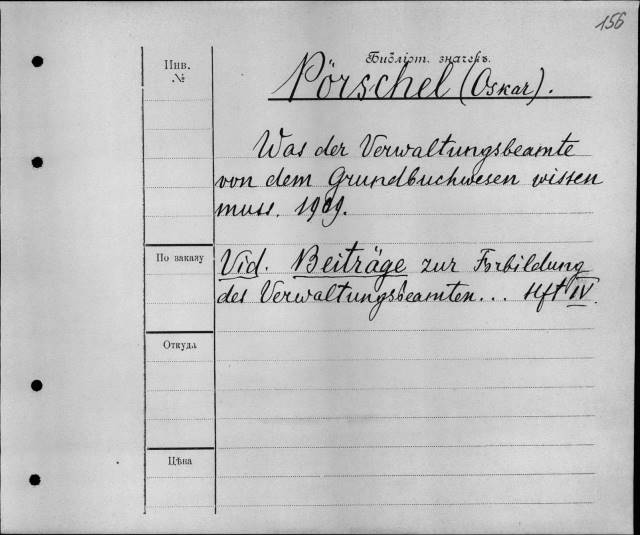 156
Инв.
№
Библіот. значекъ.
Pörschel (Oskar).
Was der Verwaltungsbeamte
von dem Grundbuchwesen wissen
muss. 1909.
По заказу
Vid. Beiträge zur Forbildung
des Verwaltungsbeamten... Hft IV.
Откуда
Цѣна